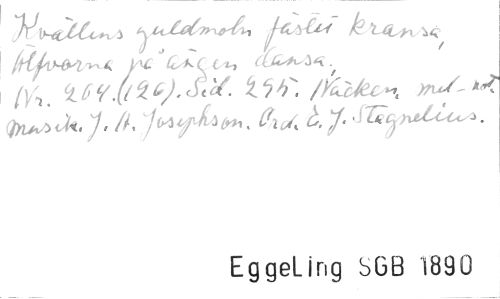 Kvällens guldmoln fästet kransa,
Älfvorna på ängen dansa,
Nr. 204.(126). Sid. 295. Näcken, med not.
musik. J. A. Josephson. Ord. E. J. Stagnelius.
Eggeling SGB 1890